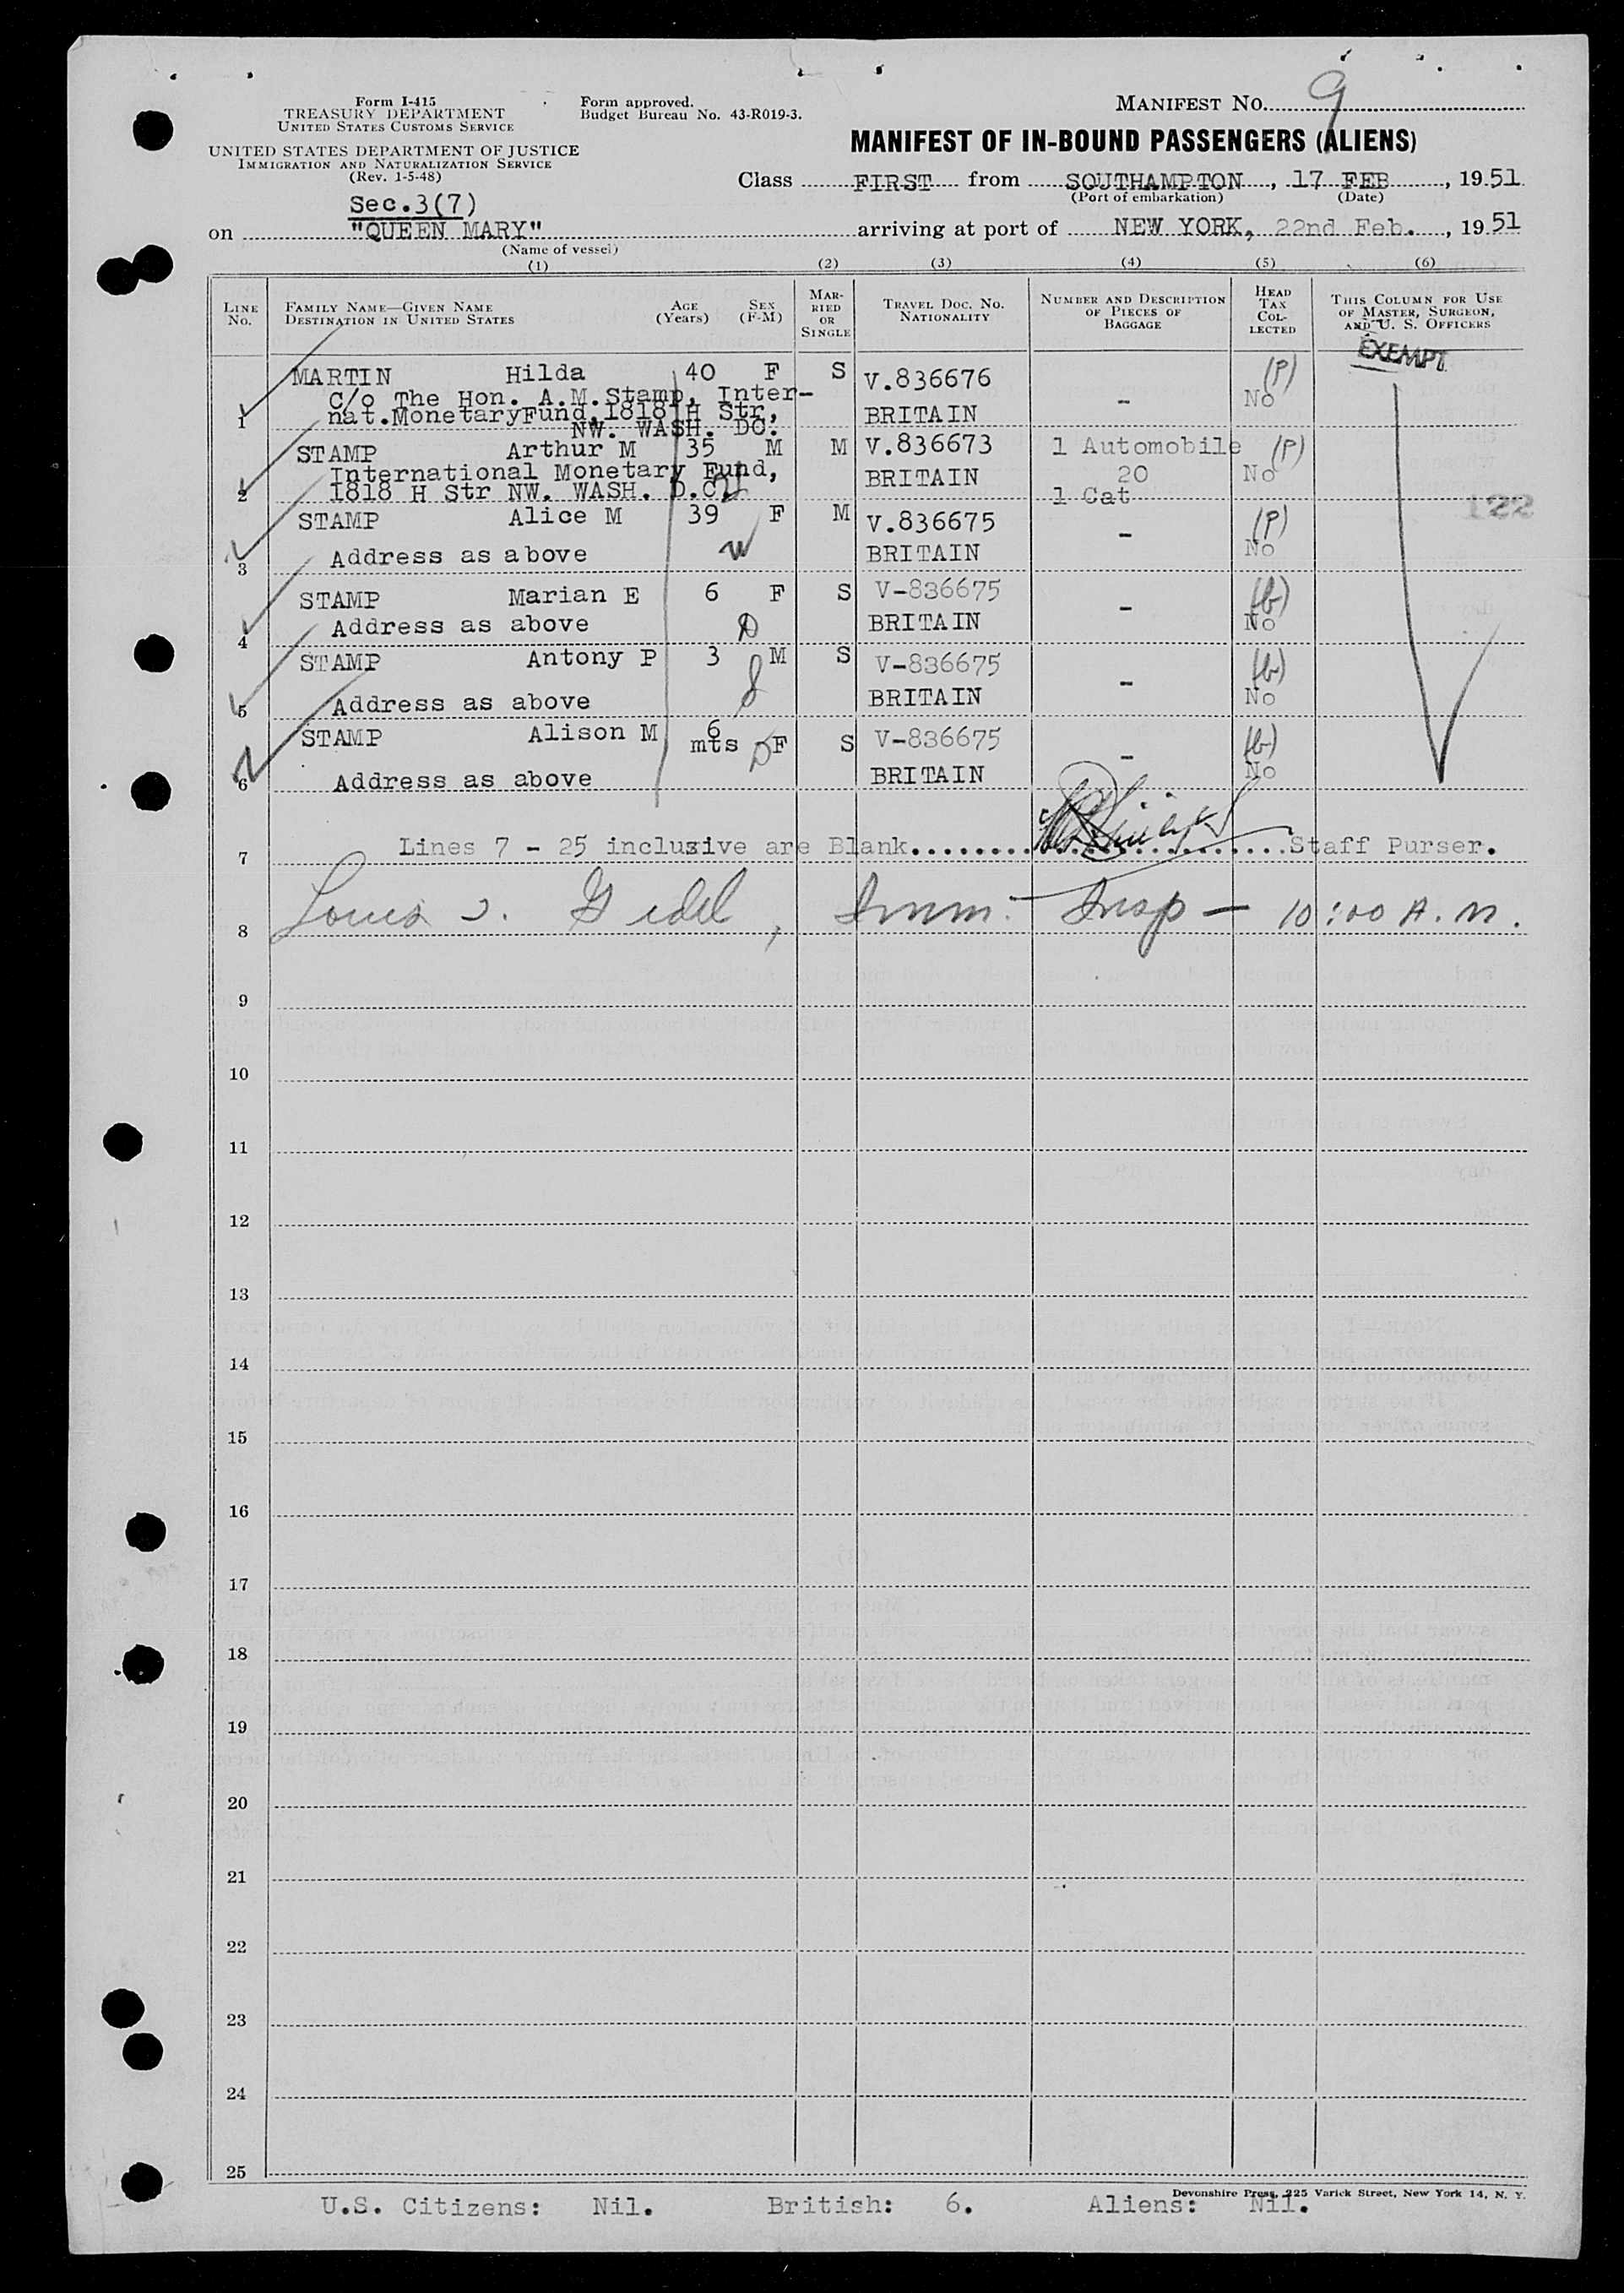 Form I-415
TREASURY DEPARTMENT
UNITED STATES CUSTOMS SERVICE
UNITED STATES DEPARTMENT OF JUSTICE
IMMIGRATION AND NATURALIZATION SERVICE
(Rev. 1-5-48)
Form approved.
Budget Bureau No. 43-R019-3.
MANIFEST NO. 9
MANIFEST OF IN-BOUND PASSENGERS (ALIENS)
Class FIRST from SOUTHAMPTON, 17 FEB, 1951
(Port of embarkation) (Date)
Sec.3(7)
on "QUEEN MARY" arriving at port of NEW YORK, 22nd Feb., 1951
(Name of vessel)
(1) (2) (3) (4) (5) (6)
LINE NO.
FAMILY NAME—GIVEN NAME
DESTINATION IN UNITED STATES
AGE (Years)
SEX (F-M)
MARRIED OR SINGLE
TRAVEL DOC. NO.
NATIONALITY
NUMBER AND DESCRIPTION OF PIECES OF BAGGAGE
HEAD TAX COLLECTED
THIS COLUMN FOR USE OF MASTER, SURGEON, AND U. S. OFFICERS
EXEMPT
MARTIN Hilda 40 F S V.836676 - (P)
C/o The Hon. A.M.Stamp, Inter-
1 nat.MonetaryFund,1818 H Str, BRITAIN No
NW. WASH. DC.
STAMP Arthur M 35 M M V.836673 1 Automobile (P)
International Monetary Fund, BRITAIN 20 No
2 1818 H Str NW. WASH. D.C. 1 Cat
122
STAMP Alice M 39 F M V.836675 - (P)
3 Address as above BRITAIN No
STAMP Marian E 6 F S V-836675 - (b)
4 Address as above BRITAIN No
STAMP Antony P 3 M S V-836675 - (b)
5 Address as above BRITAIN No
STAMP Alison M 6 mts F S V-836675 - (b)
6 Address as above BRITAIN No
7 Lines 7 - 25 inclusive are Blank..........................Staff Purser.
8 Louis J. Gidel, Imm. Insp — 10:00 A.M.
9
10
11
12
13
14
15
16
17
18
19
20
21
22
23
24
25
Devonshire Press, 225 Varick Street, New York 14, N. Y.
U.S. Citizens: Nil. British: 6. Aliens: Nil.